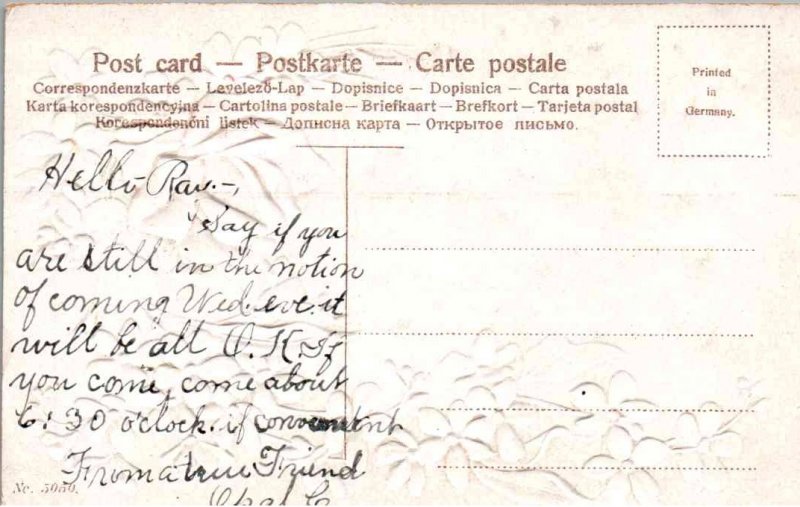 Post card — Postkarte — Carte postale
Correspondenzkarte – Levelező-Lap – Dopisnice – Dopisnica – Carta postala
Karta korespondencyjna – Cartolina postale – Briefkaart – Brefkort – Tarjeta postal
Korespondenční listek – Дописна карта – Открытое письмо.
Printed
in
Germany.
Hello Ray.-,
Say if you
are still in the notion
of coming Wed. eve. it
will be all O.K. If
you come, come about
6:30 o'clock. if convenient
From a true Friend
No. 5050.